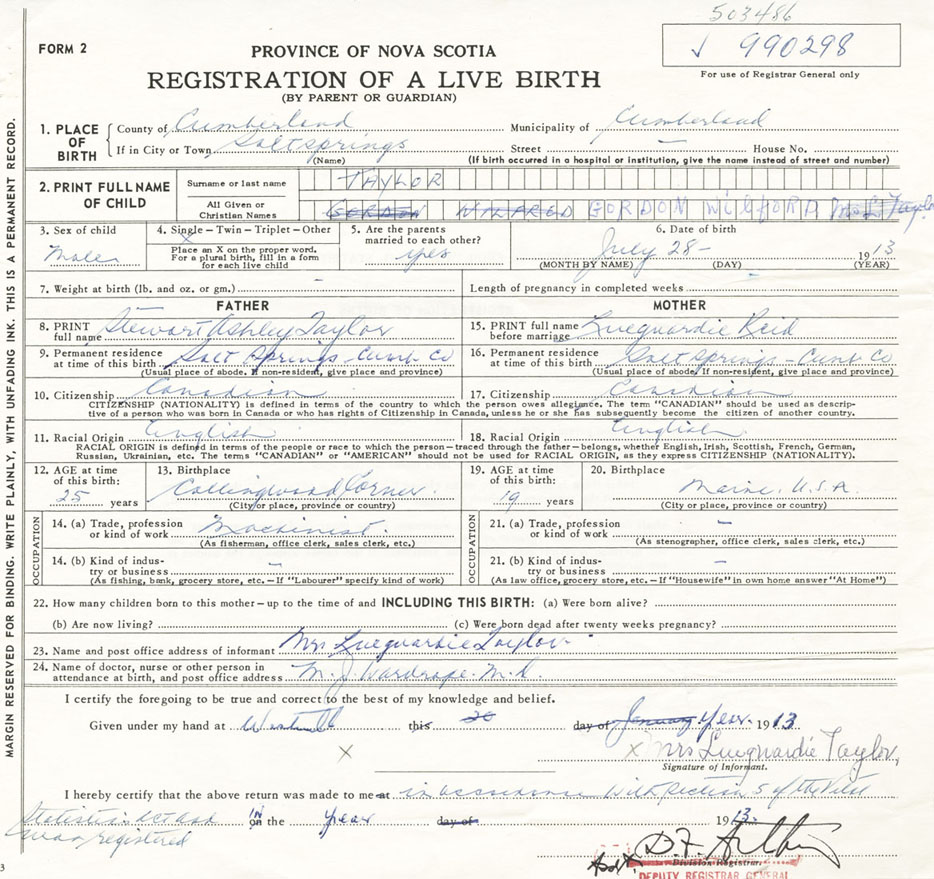 503486
990298
FORM 2
PROVINCE OF NOVA SCOTIA
REGISTRATION OF A LIVE BIRTH
(BY PARENT OR GUARDIAN)
For use of Registrar General only
MARGIN RESERVED FOR BINDING. WRITE PLAINLY, WITH UNFADING INK. THIS IS A PERMANENT RECORD.
1. PLACE OF BIRTH
County of Cumberland Municipality of Cumberland
If in City or Town Salt springs Street – House No.
(Name) (If birth occurred in a hospital or institution, give the name instead of street and number)
2. PRINT FULL NAME OF CHILD
Surname or last name TAYLOR
All Given or Christian Names GORDON WILFRED GORDON WILFORD Mrs L Taylor
3. Sex of child Male
4. Single – Twin – Triplet – Other
Place an X on the proper word. For a plural birth, fill in a form for each live child
5. Are the parents married to each other? yes
6. Date of birth
July 28 – 1913
(MONTH BY NAME) (DAY) (YEAR)
7. Weight at birth (lb. and oz. or gm.) – Length of pregnancy in completed weeks
FATHER MOTHER
8. PRINT full name Stewart Ashley Taylor
15. PRINT full name before marriage Lueguardie Reid
9. Permanent residence at time of this birth Salt Springs – Cumb Co
(Usual place of abode. If non-resident, give place and province)
16. Permanent residence at time of this birth Salt Springs – Cumb Co
(Usual place of abode. If non-resident, give place and province)
10. Citizenship Canadian 17. Citizenship Canadian
CITIZENSHIP (NATIONALITY) is defined in terms of the country to which the person owes allegiance. The term "CANADIAN" should be used as descrip-
tive of a person who was born in Canada or who has rights of Citizenship in Canada, unless he or she has subsequently become the citizen of another country.
11. Racial Origin English 18. Racial Origin English
RACIAL ORIGIN is defined in terms of the people or race to which the person – traced through the father – belongs, whether English, Irish, Scottish, French, German,
Russian, Ukrainian, etc. The terms "CANADIAN" or "AMERICAN" should not be used for RACIAL ORIGIN, as they express CITIZENSHIP (NATIONALITY).
12. AGE at time of this birth: 25 years
13. Birthplace
Collingwood Corner
(City or place, province or country)
19. AGE at time of this birth: 19 years
20. Birthplace
Maine, U.S.A.
(City or place, province or country)
OCCUPATION
14. (a) Trade, profession or kind of work Machinist
(As fisherman, office clerk, sales clerk, etc.)
14. (b) Kind of indus- try or business –
(As fishing, bank, grocery store, etc. – If "Labourer" specify kind of work)
OCCUPATION
21. (a) Trade, profession or kind of work –
(As stenographer, office clerk, sales clerk, etc.)
21. (b) Kind of indus- try or business –
(As law office, grocery store, etc. – If "Housewife" in own home answer "At Home")
22. How many children born to this mother – up to the time of and INCLUDING THIS BIRTH: (a) Were born alive?
(b) Are now living? (c) Were born dead after twenty weeks pregnancy?
23. Name and post office address of informant Mrs Lueguardie Taylor
24. Name of doctor, nurse or other person in attendance at birth, and post office address M. J. Wardrope M.D.
I certify the foregoing to be true and correct to the best of my knowledge and belief.
Given under my hand at this day of January Year 1913
X X Mrs Lueguardie Taylor
Signature of Informant.
I hereby certify that the above return was made to me at in accordance with section 5 of the Vital
Statistics act and IN on the Year day of 1913
was registered
Division Registrar.
DEPUTY REGISTRAR GENERAL
3